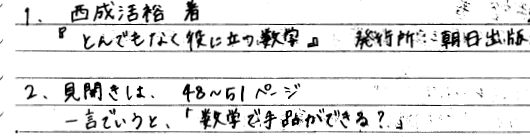 1. 西成活裕 著
『とんでもなく役に立つ数学』 発行所:朝日出版
2. 見開きは、 48~51ページ
一言でいうと、「数学で手品ができる?」